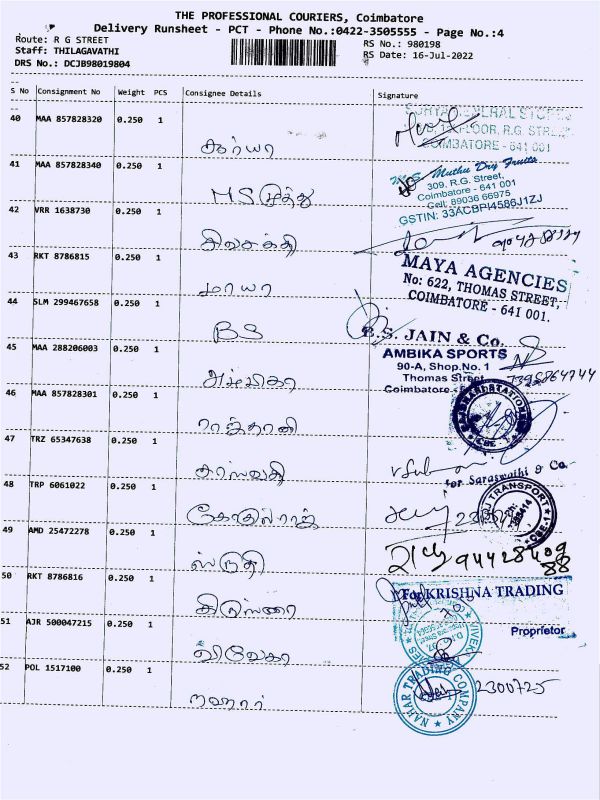 THE PROFESSIONAL COURIERS, Coimbatore
Delivery Runsheet - PCT - Phone No.:0422-3505555 - Page No.:4
Route: R G STREET
Staff: THILAGAVATHI
DRS No.: DCJB98019804
RS No.: 980198
RS Date: 16-Jul-2022
S No Consignment No Weight PCS Consignee Details Signature
40 MAA 857828320 0.250 1
சூர்யா
R.G. STREET
COIMBATORE - 641 001
41 MAA 857828340 0.250 1
MS முத்து
Muthu Dry Fruits
309, R.G. Street,
Coimbatore - 641 001
Cell: 89036 66975
GSTIN: 33ACBPI4586J1ZJ
42 VRR 1638730 0.250 1
சிவசக்தி
43 RKT 8786815 0.250 1
மாயா
MAYA AGENCIES
No: 622, THOMAS STREET,
COIMBATORE - 641 001.
44 SLM 299467658 0.250 1
BS
B.S. JAIN & Co.
45 MAA 288206003 0.250 1
அம்பிகா
AMBIKA SPORTS
90-A, Shop.No. 1
Thomas Street
Coimbatore
46 MAA 857828301 0.250 1
ராஜ்தானி
47 TRZ 65347638 0.250 1
சரஸ்வதி
for Saraswathi & Co.
48 TRP 6061022 0.250 1
கோகுல்ராஜ்
TRANSPORT
49 AMD 25472278 0.250 1
ஸ்ருதி
50 RKT 8786816 0.250 1
கிருஸ்ணா
For KRISHNA TRADING
Proprietor
51 AJR 500047215 0.250 1
விவேகா
52 POL 1517100 0.250 1
நஹார்
NAHAR TRADING COMPANY
2300725